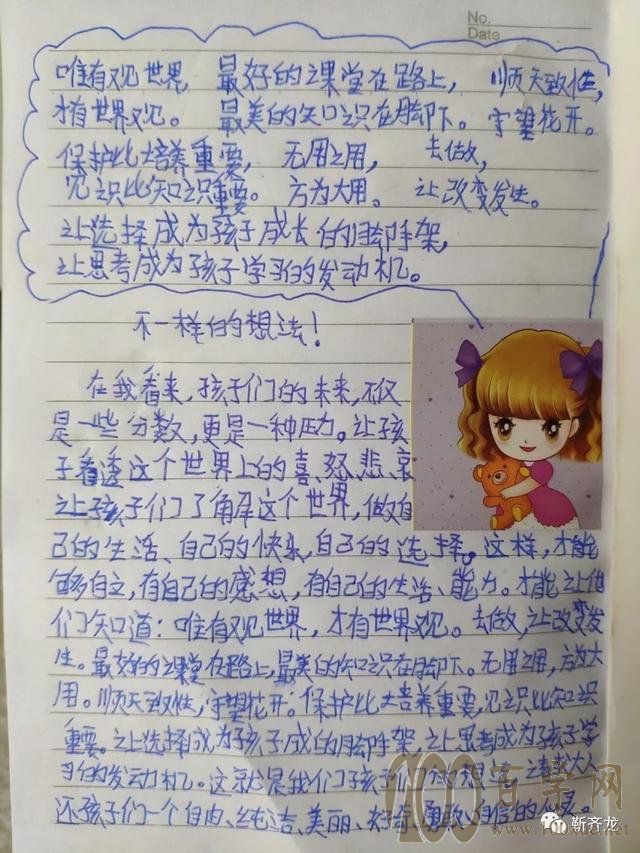 No.
Date
唯有观世界, 最好的课堂在路上, 顺天致性,
才有世界观。 最美的知识在脚下。 守望花开。
保护比培养重要, 无用之用, 去做,
见识比知识重要。 方为大用。 让改变发生。
让选择成为孩子成长的脚手架,
让思考成为孩子学习的发动机。
不一样的想法!
在我看来,孩子们的未来,不仅
是一些分数,更是一种压力。让孩
子看透这个世界上的喜、怒、悲、哀
让孩子们了解这个世界,做自
己的生活、自己的快乐,自己的选择。这样,才能
够自立,有自己的感想,有自己的生活、能力。才能让他
们知道:唯有观世界,才有世界观。去做,让改变发
生。最好的课堂在路上,最美的知识在脚下。无用之用,方为大
用。顺天致性,守望花开。保护比培养重要,见识比知识
重要。让选择成为孩子成的脚手架,让思考成为孩子学
习的发动机。这就是我们孩子们的想法,请大人
还孩子们一个自由、纯洁、美丽、好奇、勇敢、自信的
100百荣网
靳齐龙